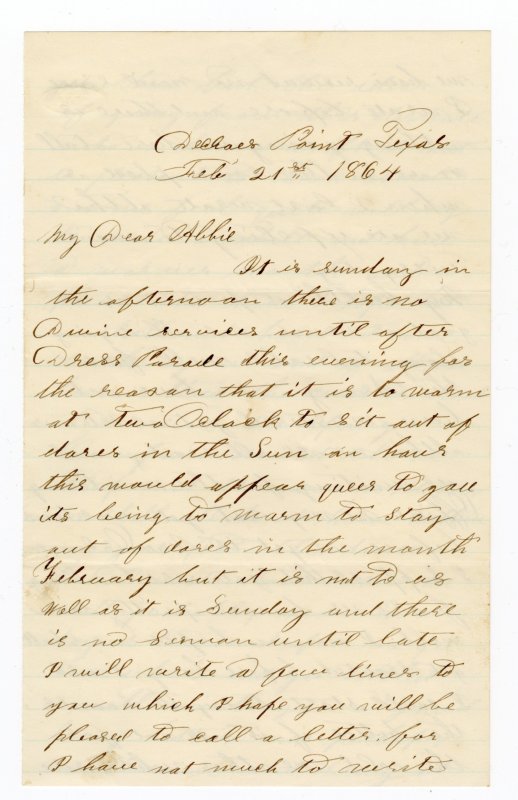 Deckoes Point Texas
Feb 21st 1864
My Dear Abbie
It is sunday in
the afternoon there is no
Divine services until after
Dress Parade this evening for
the reason that it is to warm
at Two OClock to sit out of
dores in the Sun an hour
this would appear queer to you
its being to warm to stay
out of dores in the month
February but it is not to us
Well as it is Sunday and there
is no Sermon until late
I will write a few lines to
you which I hope you will be
pleased to call a letter. for
I have not much to write